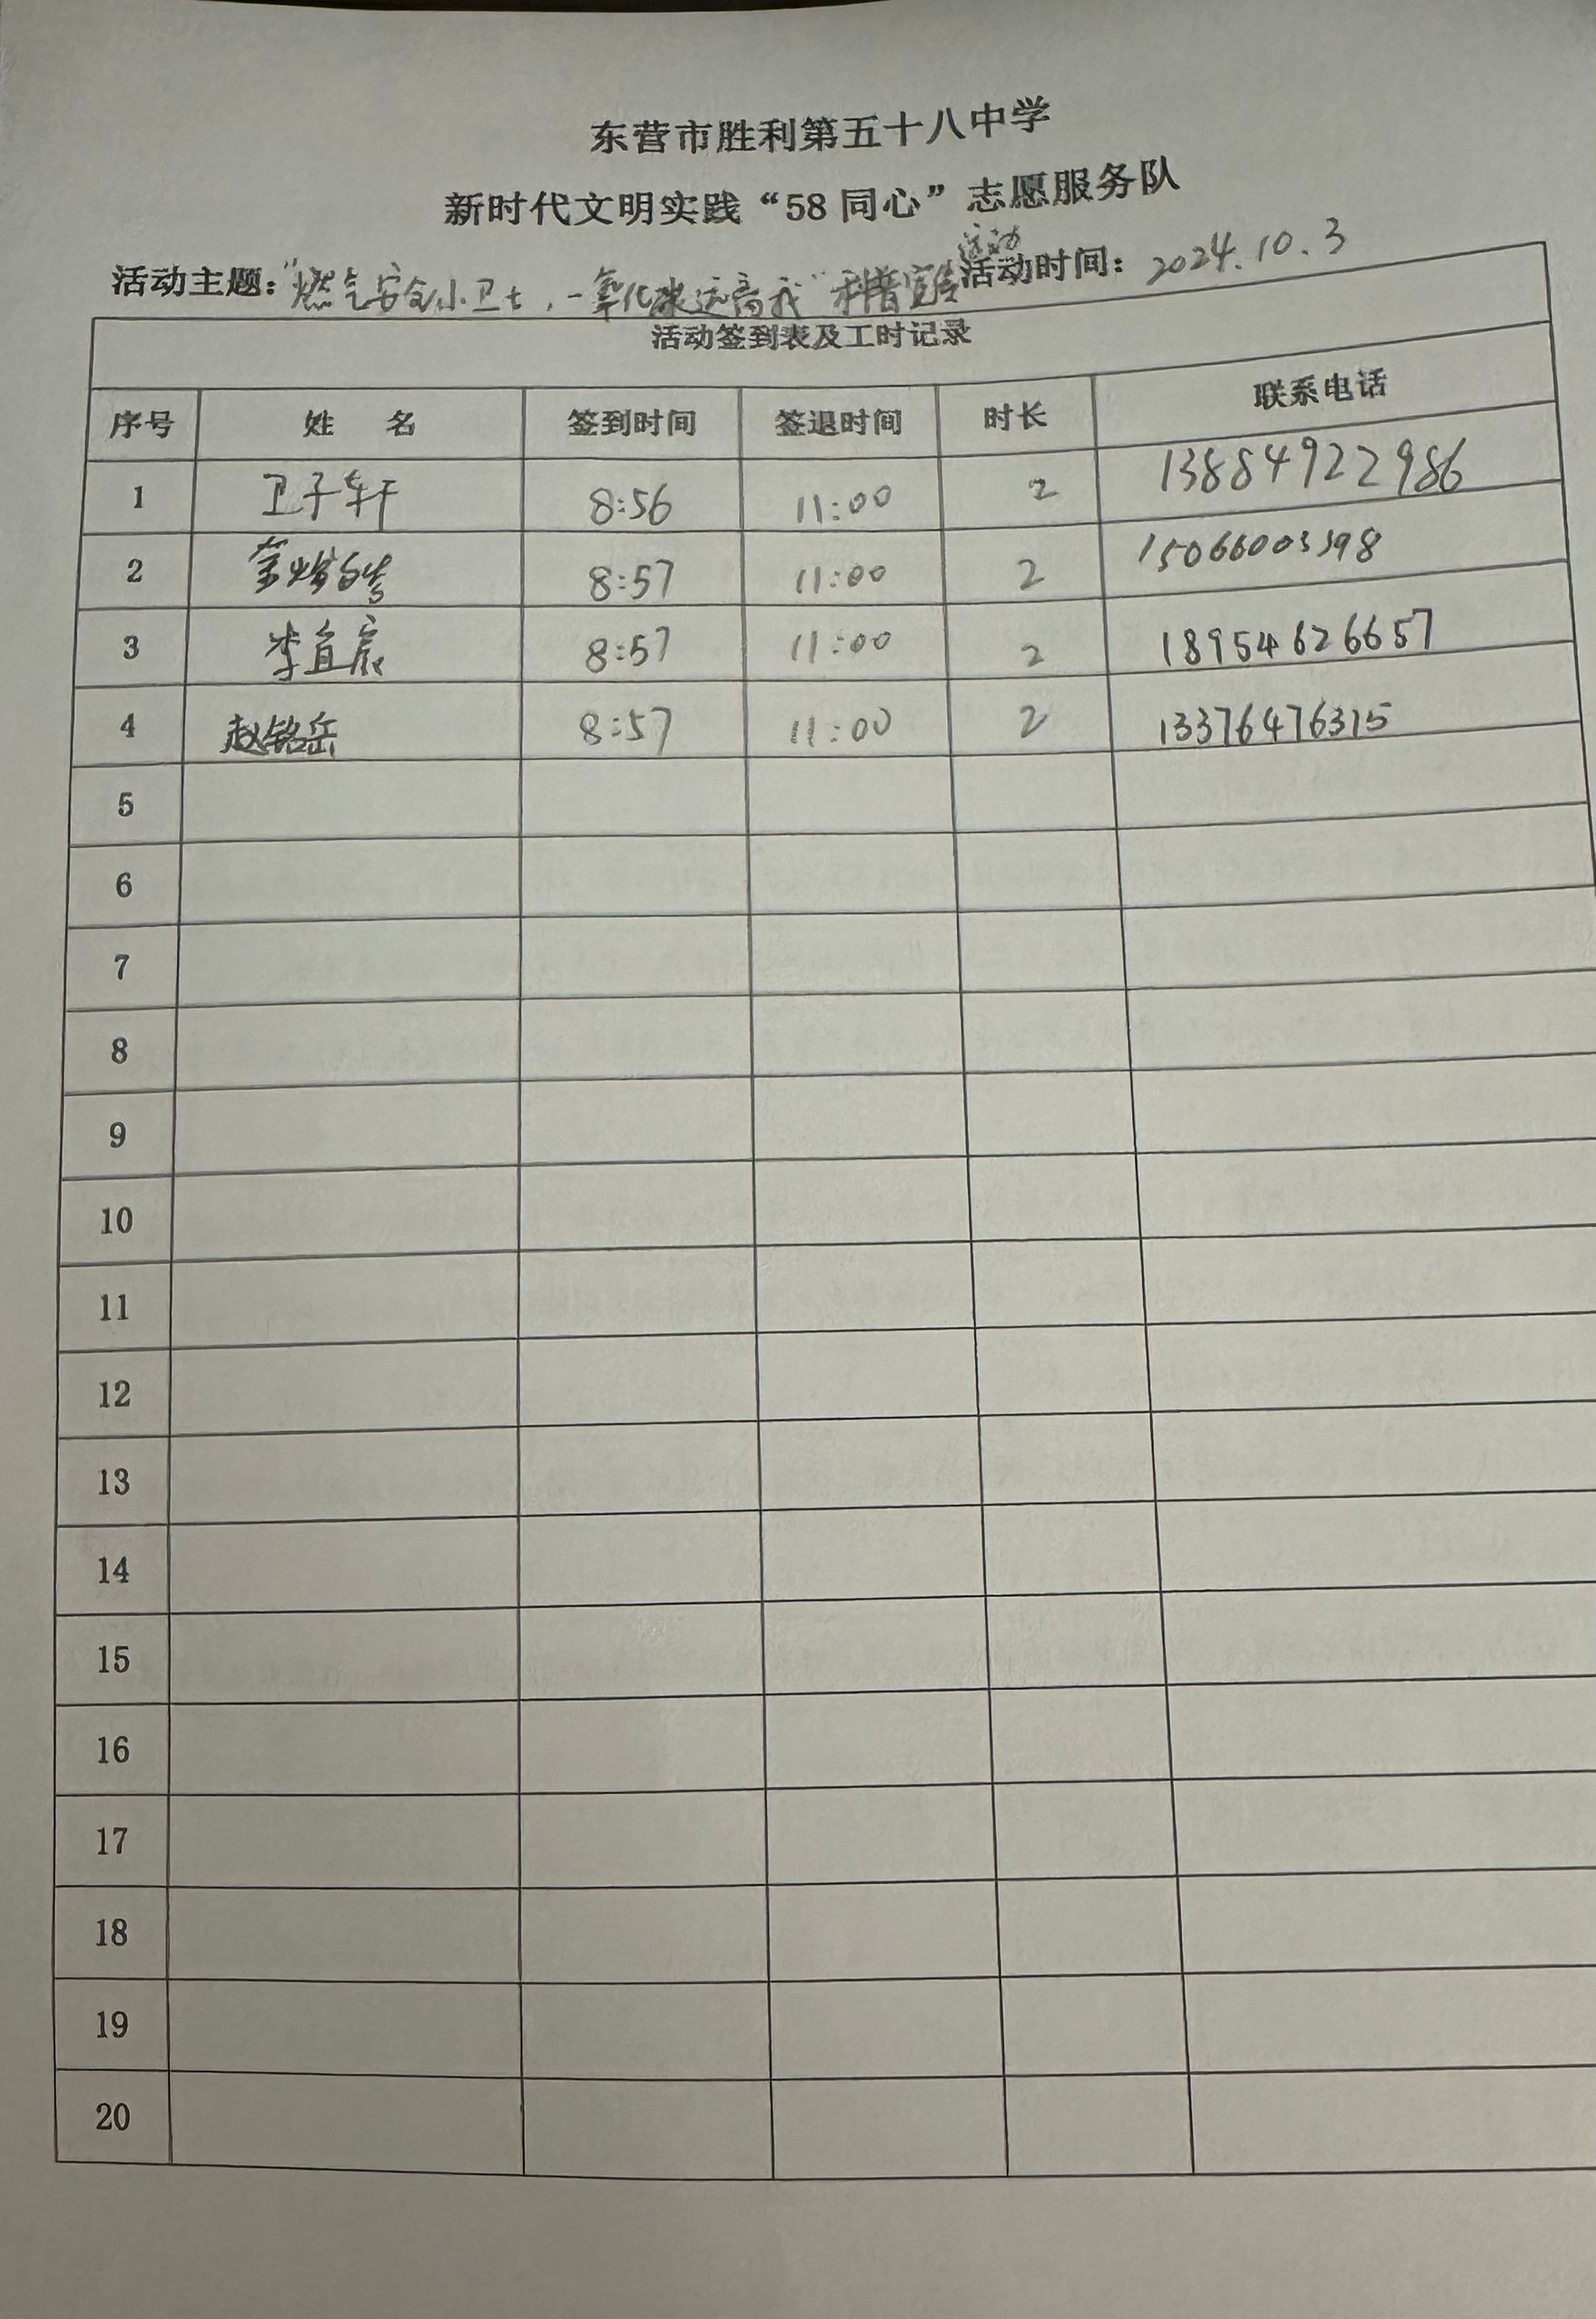 东营市胜利第五十八中学
新时代文明实践“58同心”志愿服务队
活动主题：“燃气安全小卫士，一氧化碳远离我”科普宣传活动 活动时间：2024.10.3
活动签到表及工时记录
序号 姓 名 签到时间 签退时间 时长 联系电话
1 卫子轩 8:56 11:00 2 13884922986
2 8:57 11:00 2
3 李宜宸 8:57 11:00 2 18954626657
4 赵铭岳 8:57 11:00 2 13376476315
5
6
7
8
9
10
11
12
13
14
15
16
17
18
19
20